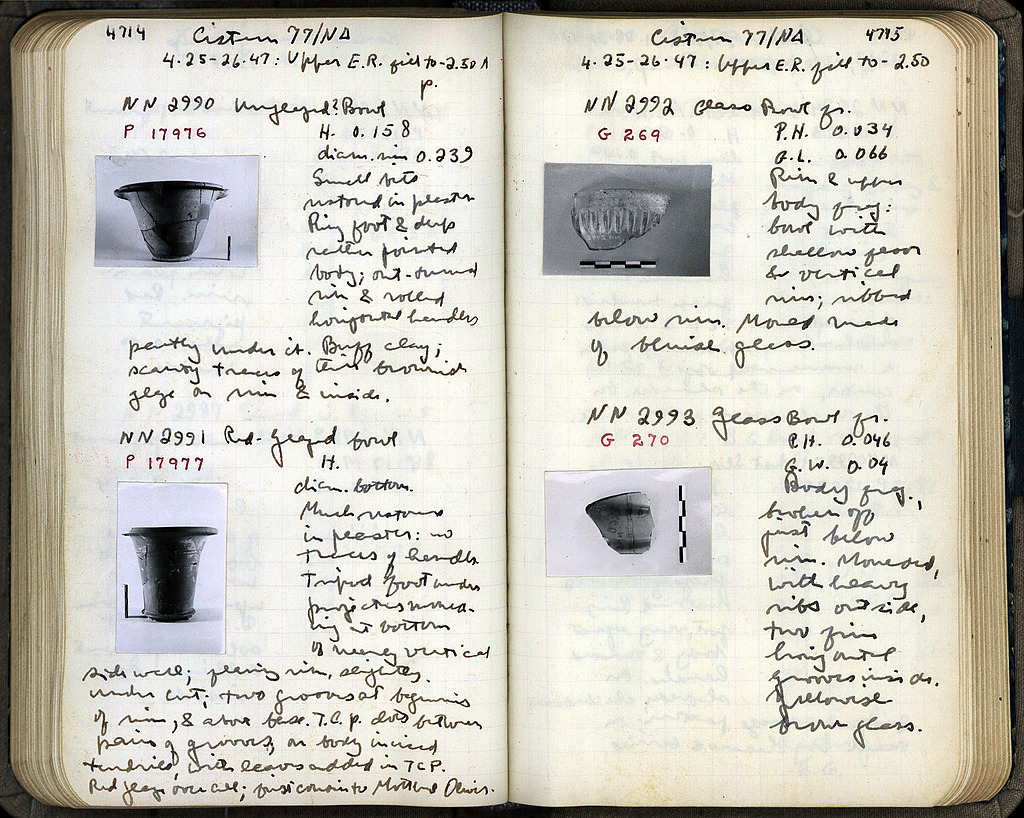 4714
Cistern 77/ΝΔ
4.25-26.47: Upper E.R. fill to -2.50
p.
NN 2990 Unglazed? Bowl
P 17976
H. 0.158
diam. rim 0.239
Small bits
restored in plaster
Ring foot & deep
rather pointed
body; out-turned
rim & rolled
horizontal handles
partly under it. Buff clay;
scanty traces of thin brownish
glaze on rim & inside.
NN 2991 Red-glazed bowl
P 17977
H.
diam. bottom.
Much restored
in plaster: no
traces of handles
Tripod foot under
projecting
at bottom
of nearly vertical
side wall; flaring rim, slightly
under cut; two grooves at beginning
of rim, & above base. T.C.P. dots between
pairs of grooves; on body incised
tendrils, with leaves added in TCP.
Red glaze over all; first cousin to
4715
Cistern 77/ΝΔ
4.25-26.47: Upper E.R. fill to -2.50
NN 2992 Glass Bowl fr.
G 269
P.H. 0.034
G.L. 0.066
Rim & upper
body frag:
bowl with
shallow floor
& vertical
rim; ribbed
below rim. Mould made
of bluish glass.
NN 2993 Glass Bowl fr.
G 270
P.H. 0.046
G.W. 0.04
Body frag.,
broken off
just below
rim. Moulded,
with heavy
ribs outside,
two fine
horizontal
grooves inside.
Yellowish
brown glass.